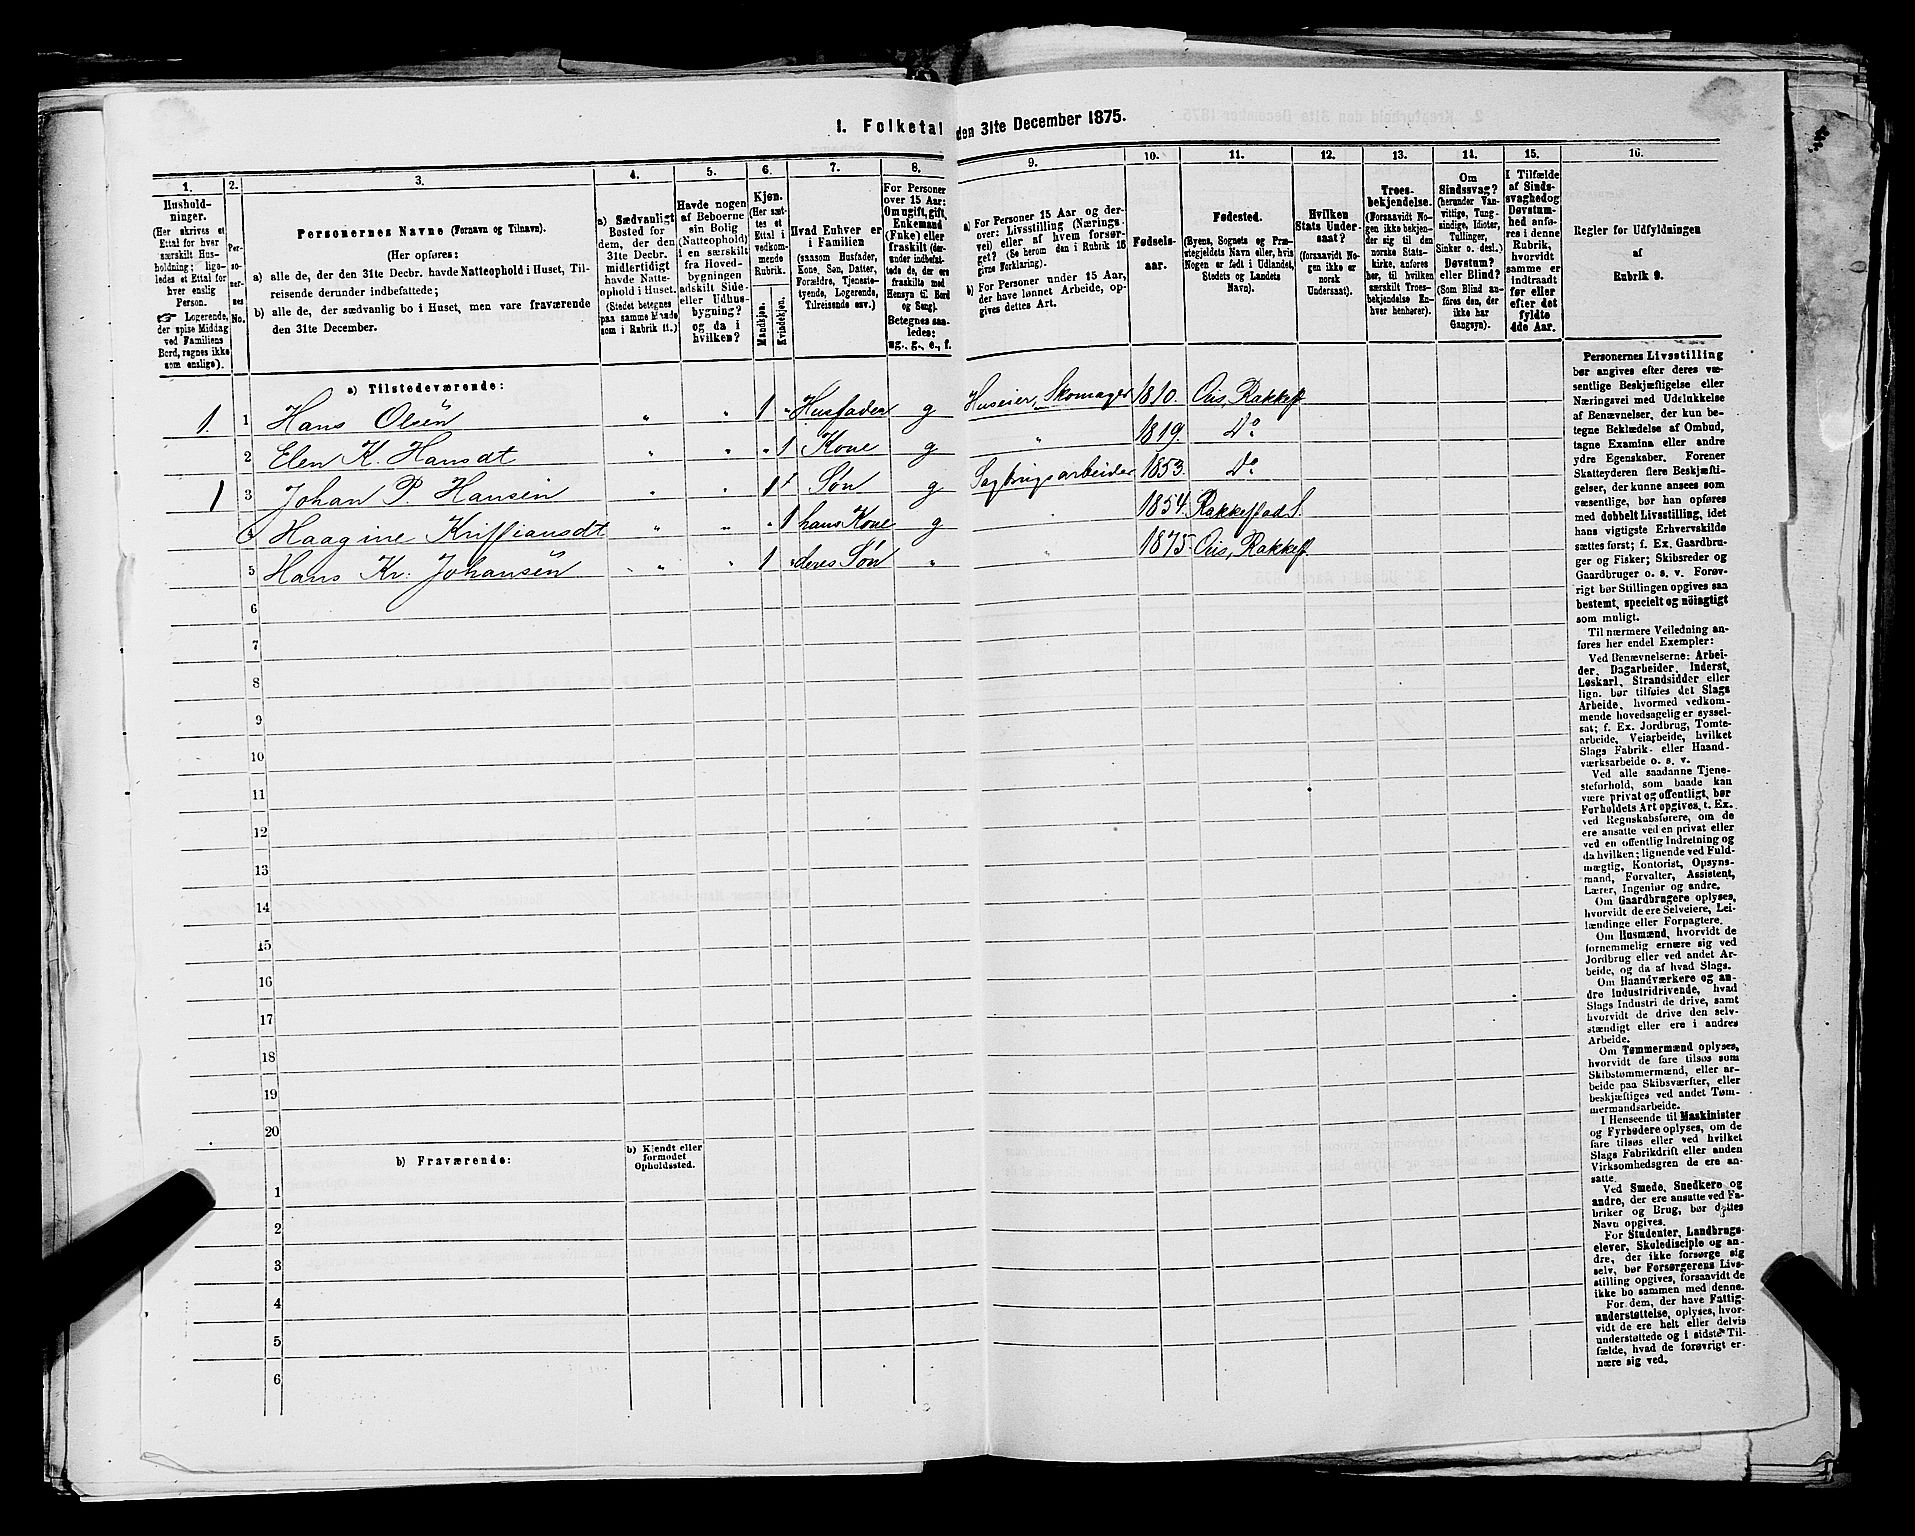 1. Folketal den 31te December 1875.
1. 2. 3. 4. 5. 6. 7. 8. 9. 10. 11. 12. 13. 14. 15. 16.
Hushold-
ninger.
(Her skrives et
Ettal for hver
særskilt Hus-
holdning; lige-
ledes et Ettal for
hver enslig
Person.
☞ Logerende,
der spise Middag
ved Familiens
Bord, regnes ikke
som enslige).
Per-
so-
ner-
nes
No.
Personernes Navne (Fornavn og Tilnavn).
(Her opføres:
a) alle de, der den 31te Decbr. havde Natteophold i Huset, Til-
reisende derunder indbefattede;
b) alle de, der sædvanlig bo i Huset, men vare fraværende
den 31te December.
a) Sædvanligt
Bosted for
dem, der den
31te Decbr.
midlertidigt
havde Natte-
ophold i Huset.
(Stedet betegnes
paa samme Maade
som i Rubrik 11.)
Havde nogen
af Beboerne
sin Bolig
(Natteophold)
i en særskilt
fra Hoved-
bygningen
adskilt Side-
eller Udhus-
bygning?
og da i
hvilken?
Kjøn.
(Her sæt-
tes et
Ettal i
vedkom-
mende
Rubrik.
Mandkjøn.
Kvindekjøn.
Hvad Enhver er
i Familien
(saasom Husfader,
Kone, Søn, Datter,
Forældre, Tjeneste-
tyende, Logerende,
Tilreisende osv.)
For Personer
over 15 Aar:
Om ugift, gift,
Enkemand
(Enke) eller
fraskilt (der-
under indbefat-
tede de, der ere
fraskilte med
Hensyn til Bord
og Seng).
Betegnes saa-
ledes:
ug., g., e., f.
a) For Personer 15 Aar og der-
over: Livsstilling (Nærings-
vei) eller af hvem forsør-
get? (Se herom den i Rubrik 16
givne Forklaring).
b) For Personer under 15 Aar,
der have lønnet Arbeide, op-
gives dettes Art.
Fødsels-
aar.
Fødested.
(Byens, Sognets og Præ-
stegjeldets Navn eller, hvis
Nogen er født i Udlandet,
Stedets og Landets
Navn).
Hvilken
Stats Under-
saat?
(forsaavidt No-
gen ikke er
norsk
Undersaat).
Troes-
bekjendelse.
(Forsaavidt No-
gen ikke bekjen-
der sig til den
norske Stats-
kirke, anføres
her, til hvilken
særskilt Troes-
bekjendelse En-
hver henhører).
Om
Sindssvag?
(herunder Van-
vittige, Tung-
sindige, Idioter,
Tullinger,
Sinker o. desl.)
Døvstum?
eller Blind?
(Som Blind an-
føres den, der
ikke har
Gangsyn).
I Tilfælde
af Sinds-
svaghed og
Døvstum-
hed anfø-
res i denne
Rubrik,
hvorvidt
samme er
indtraadt
før eller
efter det
fyldte
4de Aar.
Regler for Udfyldningen
af
Rubrik 9.
a) Tilstedeværende:
1. 1 Hans Olsen " " 1 " Husfader g Huseier, Skomager 1810. Ous, Rakkest.
2 Elen K. Hansdt " " " 1 Kone g " 1819. Do
1 3 Johan P. Hansen " " 1 Søn g Sagbrugsarbeider 1853. Do
4 Haagine Kristiansdt " " " 1 hans Kone g " 1854. Rakkestad S.
5 Hans Kr. Johansen " " 1 " deres Søn " " 1875 Ous, Rakkest.
6
7
8
9
10
11
12
13
14
15
16
17
18
19
20
b) Fraværende:
b) Kjendt eller
formodet
Opholdssted.
1
2
3
4
5
6
Personernes Livsstilling
bør angives efter deres væ-
sentlige Beskjæftigelse eller
Næringsvei med Udelukkelse
af Benævnelser, der kun be-
tegne Beklædelse af Ombud,
tagne Examina eller andre
ydre Egenskaber. Forener
Skatteyderen flere Beskjæfti-
gelser, der kunne ansees som
væsentlige, bør han opføres
med dobbelt Livsstilling, idet
hans vigtigste Erhvervskilde
sættes først; f. Ex. Gaardbru-
ger og Fisker; Skibsreder og
Gaardbruger o. s. v. Forøv-
rigt bør Stillingen opgives saa
bestemt, specielt og nøiagtigt
som muligt.
Til nærmere Veiledning an-
føres her endel Exempler:
Ved Benævnelserne: Arbei-
der, Dagarbeider, Inderst,
Løskarl, Strandsidder eller
lign. bør tilføies det Slags
Arbeide, hvormed vedkom-
mende hovedsagelig er syssel-
sat; f. Ex. Jordbrug, Tomte-
arbeide, Veiarbeide, hvilket
Slags Fabrik- eller Haand-
værksarbeide o. s. v.
Ved alle saadanne Tjene-
steforhold, som baade kan
være privat og offentligt, bør
Forholdets Art opgives, t. Ex.
ved Regnskabsførere, om de
ere ansatte ved en privat eller
ved en offentlig Indretning og
da hvilken; lignende ved Fuld-
mægtig, Kontorist, Opsyns-
mand, Forvalter, Assistent,
Lærer, Ingeniør og andre.
Om Gaardbrugere oplyses,
hvorvidt de ere Selveiere, Lei-
lændinge eller Forpagtere.
Om Husmænd, hvorvidt de
fornemmelig ernære sig ved
Jordbrug eller ved andet Ar-
beide, og da af hvad Slags.
Om Haandværkere og an-
dre Industridrivende, hvad
Slags Industri de drive, samt
hvorvidt de drive den selv-
stændigt eller ere i andres
Arbeide.
Om Tømmermænd oplyses,
hvorvidt de fare tilsøs som
Skibstømmermænd, eller ar-
beide paa Skibsværfter, eller
beskjæftiges ved andet Tøm-
mermandsarbeide.
I Henseende til Maskinister
og Fyrbødere oplyses, om de
fare tilsøs eller ved hvilket
Slags Fabrikdrift eller anden
Virksomhedsgren de ere an-
satte.
Ved Smede, Snedkere og
andre, der ere ansatte ved Fa-
briker og Brug, bør dettes
Navn opgives.
For Studenter, Landbrugs-
elever, Skoledisciple og an-
dre, der ikke forsørge sig
selv, bør Forsørgerens Livs-
stilling opgives, forsaavidt de
ikke bo sammen med denne.
For dem, der have Fattig-
understøttelse, oplyses, hvor-
vidt de ere helt eller delvis
understøttede og i sidste Til-
fælde, hvad de forøvrigt er-
nære sig ved.